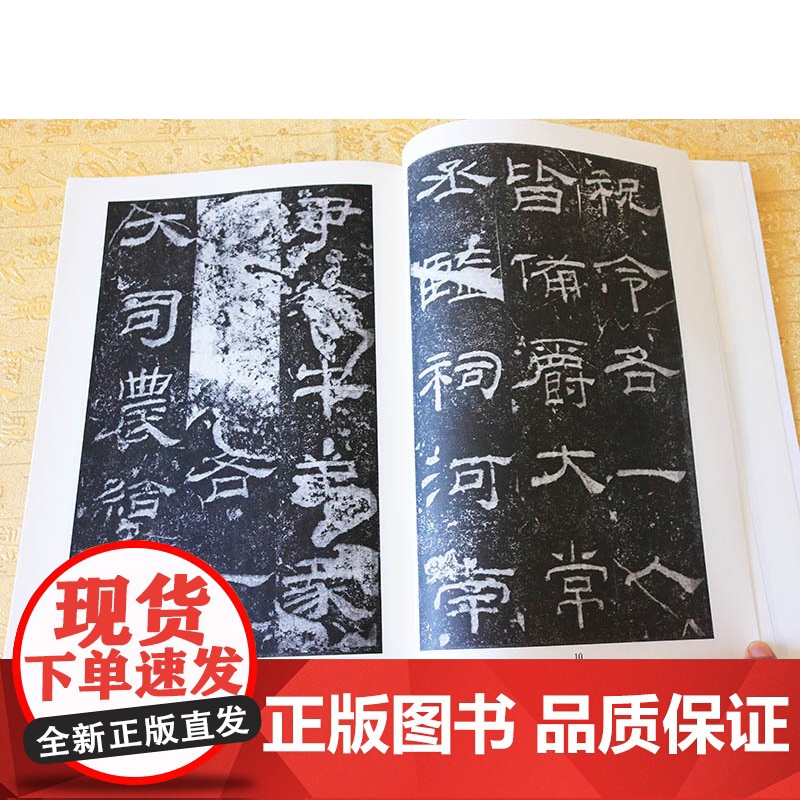 祝令各一人
皆備爵大常
丞監祠河南
尹給牛羊豕
各一
大司農給
10
现货
下单速发
全新正版直发
正版图书 品质保证